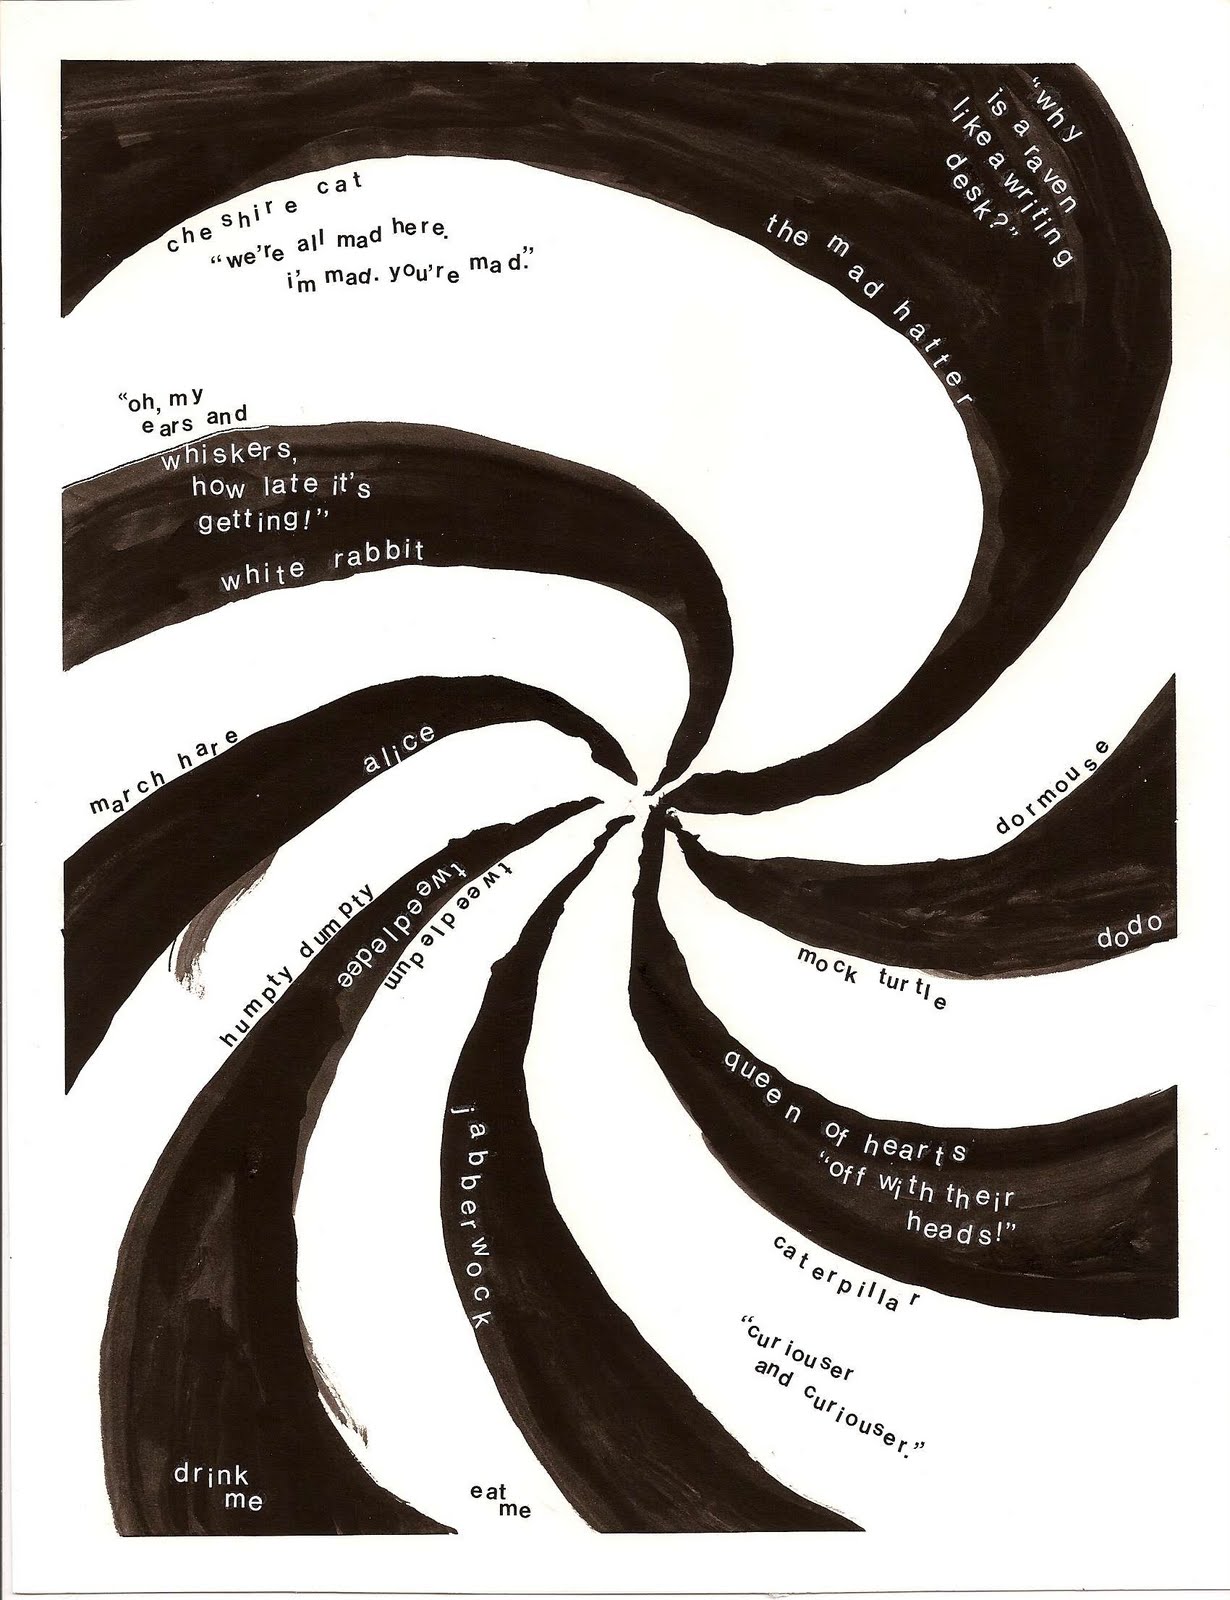 "why
is a raven
like a writing
desk?"
the mad hatter
cheshire cat
"we're all mad here.
i'm mad. you're mad."
"oh, my
ears and
whiskers,
how late it's
getting!"
white rabbit
march hare
alice
dormouse
dodo
mock turtle
humpty dumpty
tweedledee
tweedledum
queen of hearts
"off with their
heads!"
jabberwock
caterpillar
"curiouser
and curiouser."
drink
me
eat
me